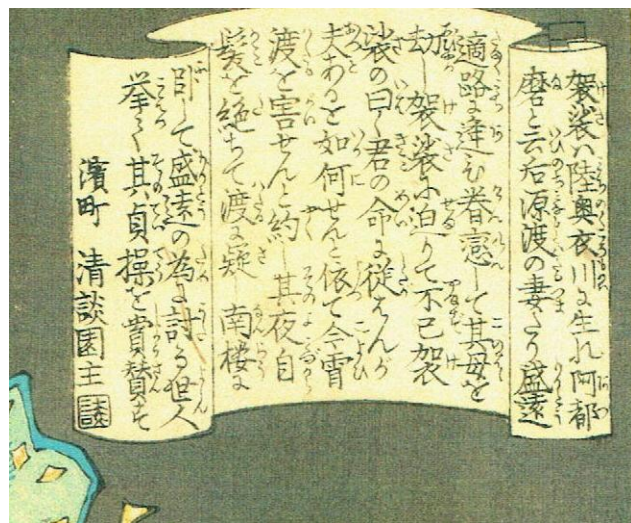 袈裟ハ陸奥夜川に生れ阿都
磨と云后源渡の妻たり盛遠
適路に逢ひ眷恋して其母を
劫し袈裟に迫りて不已袈
裟の曰く君の命に従はんが
夫あるを如何せんと依て今宵
渡を害せんと約し其夜自
髪を絶ちて渡に疑 南楼に
臥して盛遠の為に討る世人
挙て其貞操を賞賛す
濱町 清談園主